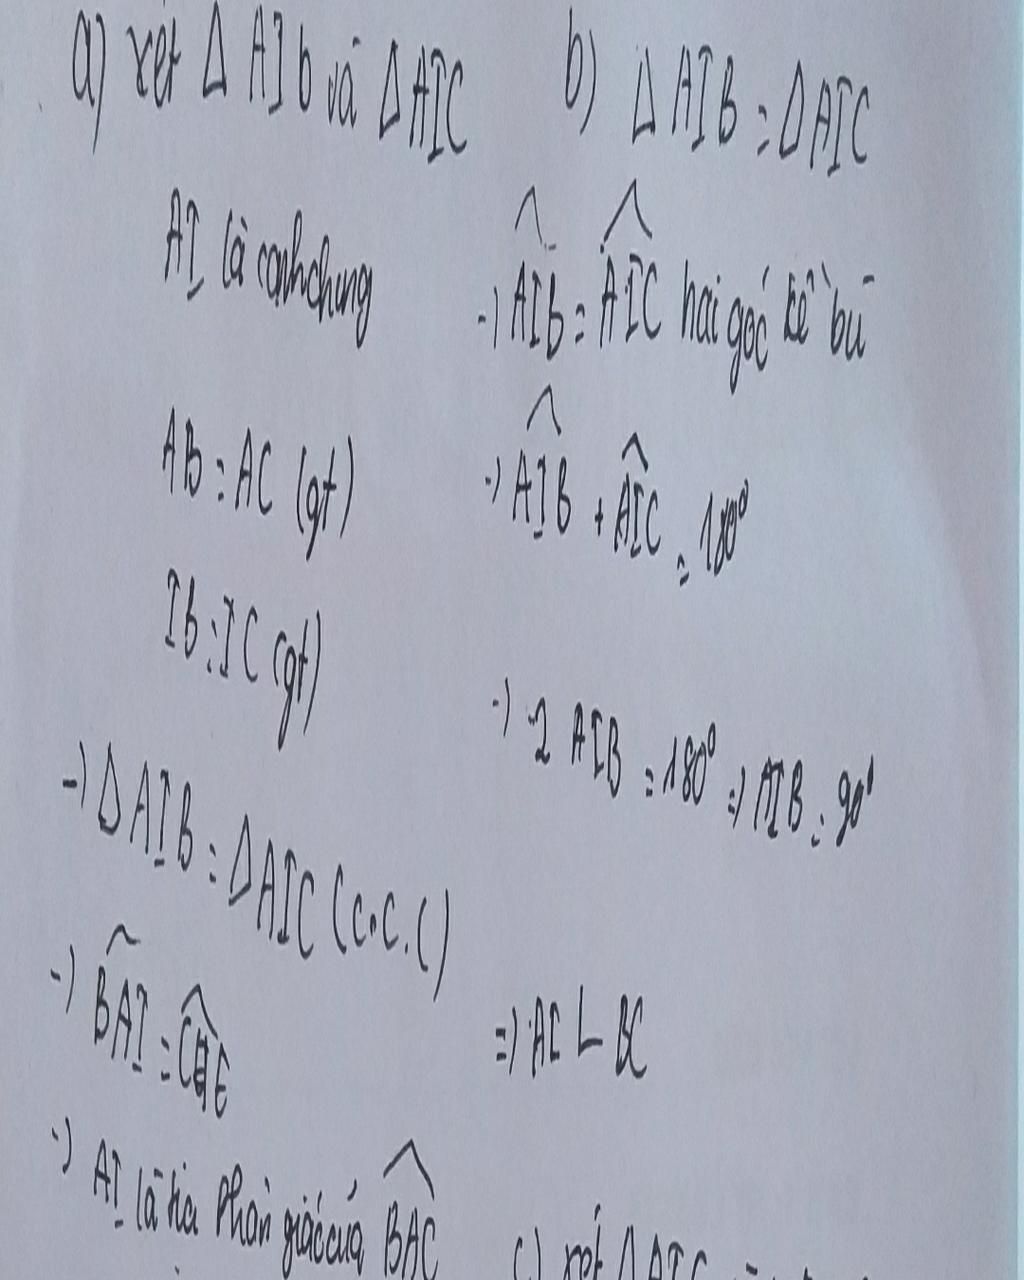 a) xét Δ AIb và Δ AIC
AI là cạnh chung
Ab = AC (gt)
Ib = IC (gt)
-) Δ AIB = Δ AIC (c.c.c)
-) BAI =
-) AI là tia Phân giác của BAC
b) Δ AIB = Δ AIC
-) AIb = AIC hai góc kề bù
-) AIB + AIC = 180°
-) 2 AIB = 180° => AIB = 90°
=> AI ⊥ BC
c) xét Δ AIC